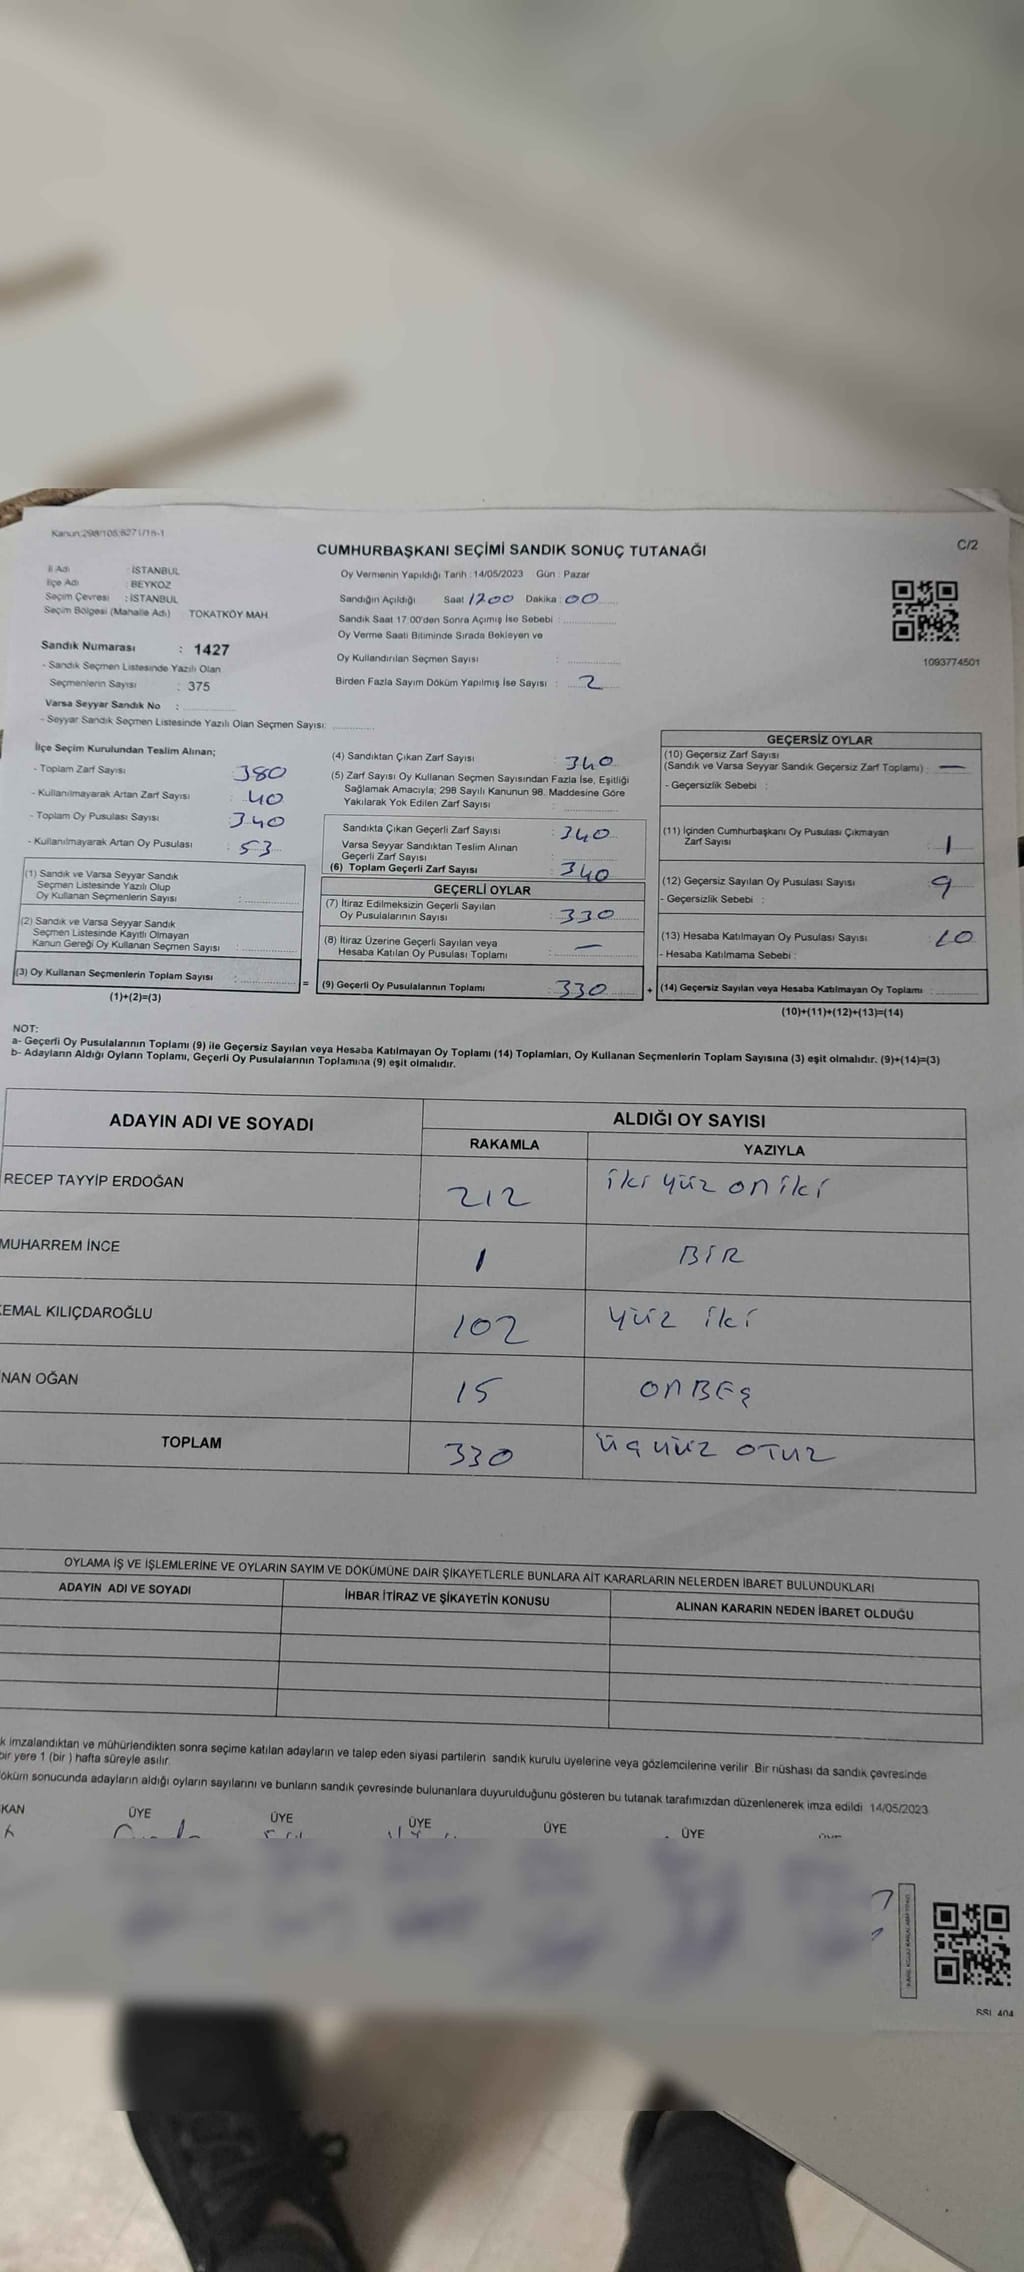 Kanun:298/105;6271/18-1
CUMHURBAŞKANI SEÇİMİ SANDIK SONUÇ TUTANAĞI
C/2
İl Adı : İSTANBUL
İlçe Adı : BEYKOZ
Seçim Çevresi : İSTANBUL
Seçim Bölgesi (Mahalle Adı) TOKATKÖY MAH.
Oy Vermenin Yapıldığı Tarih : 14/05/2023 Gün : Pazar
Sandığın Açıldığı Saat 1700 Dakika 00
Sandık Saat 17.00'den Sonra Açımış İse Sebebi :
Oy Verme Saati Bitiminde Sırada Bekleyen ve
Oy Kullandırılan Seçmen Sayısı :
Birden Fazla Sayım Döküm Yapılmış İse Sayısı : 2
1093774501
Sandık Numarası : 1427
- Sandık Seçmen Listesinde Yazılı Olan
Seçmenlerin Sayısı : 375
Varsa Seyyar Sandık No :
- Seyyar Sandık Seçmen Listesinde Yazılı Olan Seçmen Sayısı:
İlçe Seçim Kurulundan Teslim Alınan;
- Toplam Zarf Sayısı : 380
- Kullanılmayarak Artan Zarf Sayısı : 40
- Toplam Oy Pusulası Sayısı : 340
- Kullanılmayarak Artan Oy Pusulası : 53
(1) Sandık ve Varsa Seyyar Sandık
Seçmen Listesinde Yazılı Olup
Oy Kullanan Seçmenlerin Sayısı :
(2) Sandık ve Varsa Seyyar Sandık
Seçmen Listesinde Kayıtlı Olmayan
Kanun Gereği Oy Kullanan Seçmen Sayısı :
(3) Oy Kullanan Seçmenlerin Toplam Sayısı :
(1)+(2)=(3)
=
(4) Sandıktan Çıkan Zarf Sayısı : 340
(5) Zarf Sayısı Oy Kullanan Seçmen Sayısından Fazla İse, Eşitliği
Sağlamak Amacıyla; 298 Sayılı Kanunun 98. Maddesine Göre
Yakılarak Yok Edilen Zarf Sayısı :
Sandıkta Çıkan Geçerli Zarf Sayısı : 340
Varsa Seyyar Sandıktan Teslim Alınan
Geçerli Zarf Sayısı :
(6) Toplam Geçerli Zarf Sayısı : 340
GEÇERLİ OYLAR
(7) İtiraz Edilmeksizin Geçerli Sayılan
Oy Pusulalarının Sayısı : 330
(8) İtiraz Üzerine Geçerli Sayılan veya
Hesaba Katılan Oy Pusulası Toplamı : —
(9) Geçerli Oy Pusulalarının Toplamı : 330
+
GEÇERSİZ OYLAR
(10) Geçersiz Zarf Sayısı
(Sandık ve Varsa Seyyar Sandık Geçersiz Zarf Toplamı) : —
- Geçersizlik Sebebi :
(11) İçinden Cumhurbaşkanı Oy Pusulası Çıkmayan
Zarf Sayısı : 1
(12) Geçersiz Sayılan Oy Pusulası Sayısı : 9
- Geçersizlik Sebebi :
(13) Hesaba Katılmayan Oy Pusulası Sayısı : 10
- Hesaba Katılmama Sebebi :
(14) Geçersiz Sayılan veya Hesaba Katılmayan Oy Toplamı :
(10)+(11)+(12)+(13)=(14)
NOT:
a- Geçerli Oy Pusulalarının Toplamı (9) ile Geçersiz Sayılan veya Hesaba Katılmayan Oy Toplamı (14) Toplamları, Oy Kullanan Seçmenlerin Toplam Sayısına (3) eşit olmalıdır. (9)+(14)=(3)
b- Adayların Aldığı Oyların Toplamı, Geçerli Oy Pusulalarının Toplamına (9) eşit olmalıdır.
ADAYIN ADI VE SOYADI ALDIĞI OY SAYISI
RAKAMLA YAZIYLA
RECEP TAYYİP ERDOĞAN 212 iki yüz on iki
MUHARREM İNCE 1 BİR
KEMAL KILIÇDAROĞLU 102 yüz iki
NAN OĞAN 15 ONBEŞ
TOPLAM 330 üçyüz OTUZ
OYLAMA İŞ VE İŞLEMLERİNE VE OYLARIN SAYIM VE DÖKÜMÜNE DAİR ŞİKAYETLERLE BUNLARA AİT KARARLARIN NELERDEN İBARET BULUNDUKLARI
ADAYIN ADI VE SOYADI İHBAR İTİRAZ VE ŞİKAYETİN KONUSU ALINAN KARARIN NEDEN İBARET OLDUĞU
k imzalandıktan ve mühürlendikten sonra seçime katılan adayların ve talep eden siyasi partilerin sandık kurulu üyelerine veya gözlemcilerine verilir. Bir nüshası da sandık çevresinde
bir yere 1 (bir ) hafta süreyle asılır.
döküm sonucunda adayların aldığı oyların sayılarını ve bunların sandık çevresinde bulunanlara duyurulduğunu gösteren bu tutanak tarafımızdan düzenlenerek imza edildi. 14/05/2023
KAN ÜYE ÜYE ÜYE ÜYE ÜYE
SSI 404